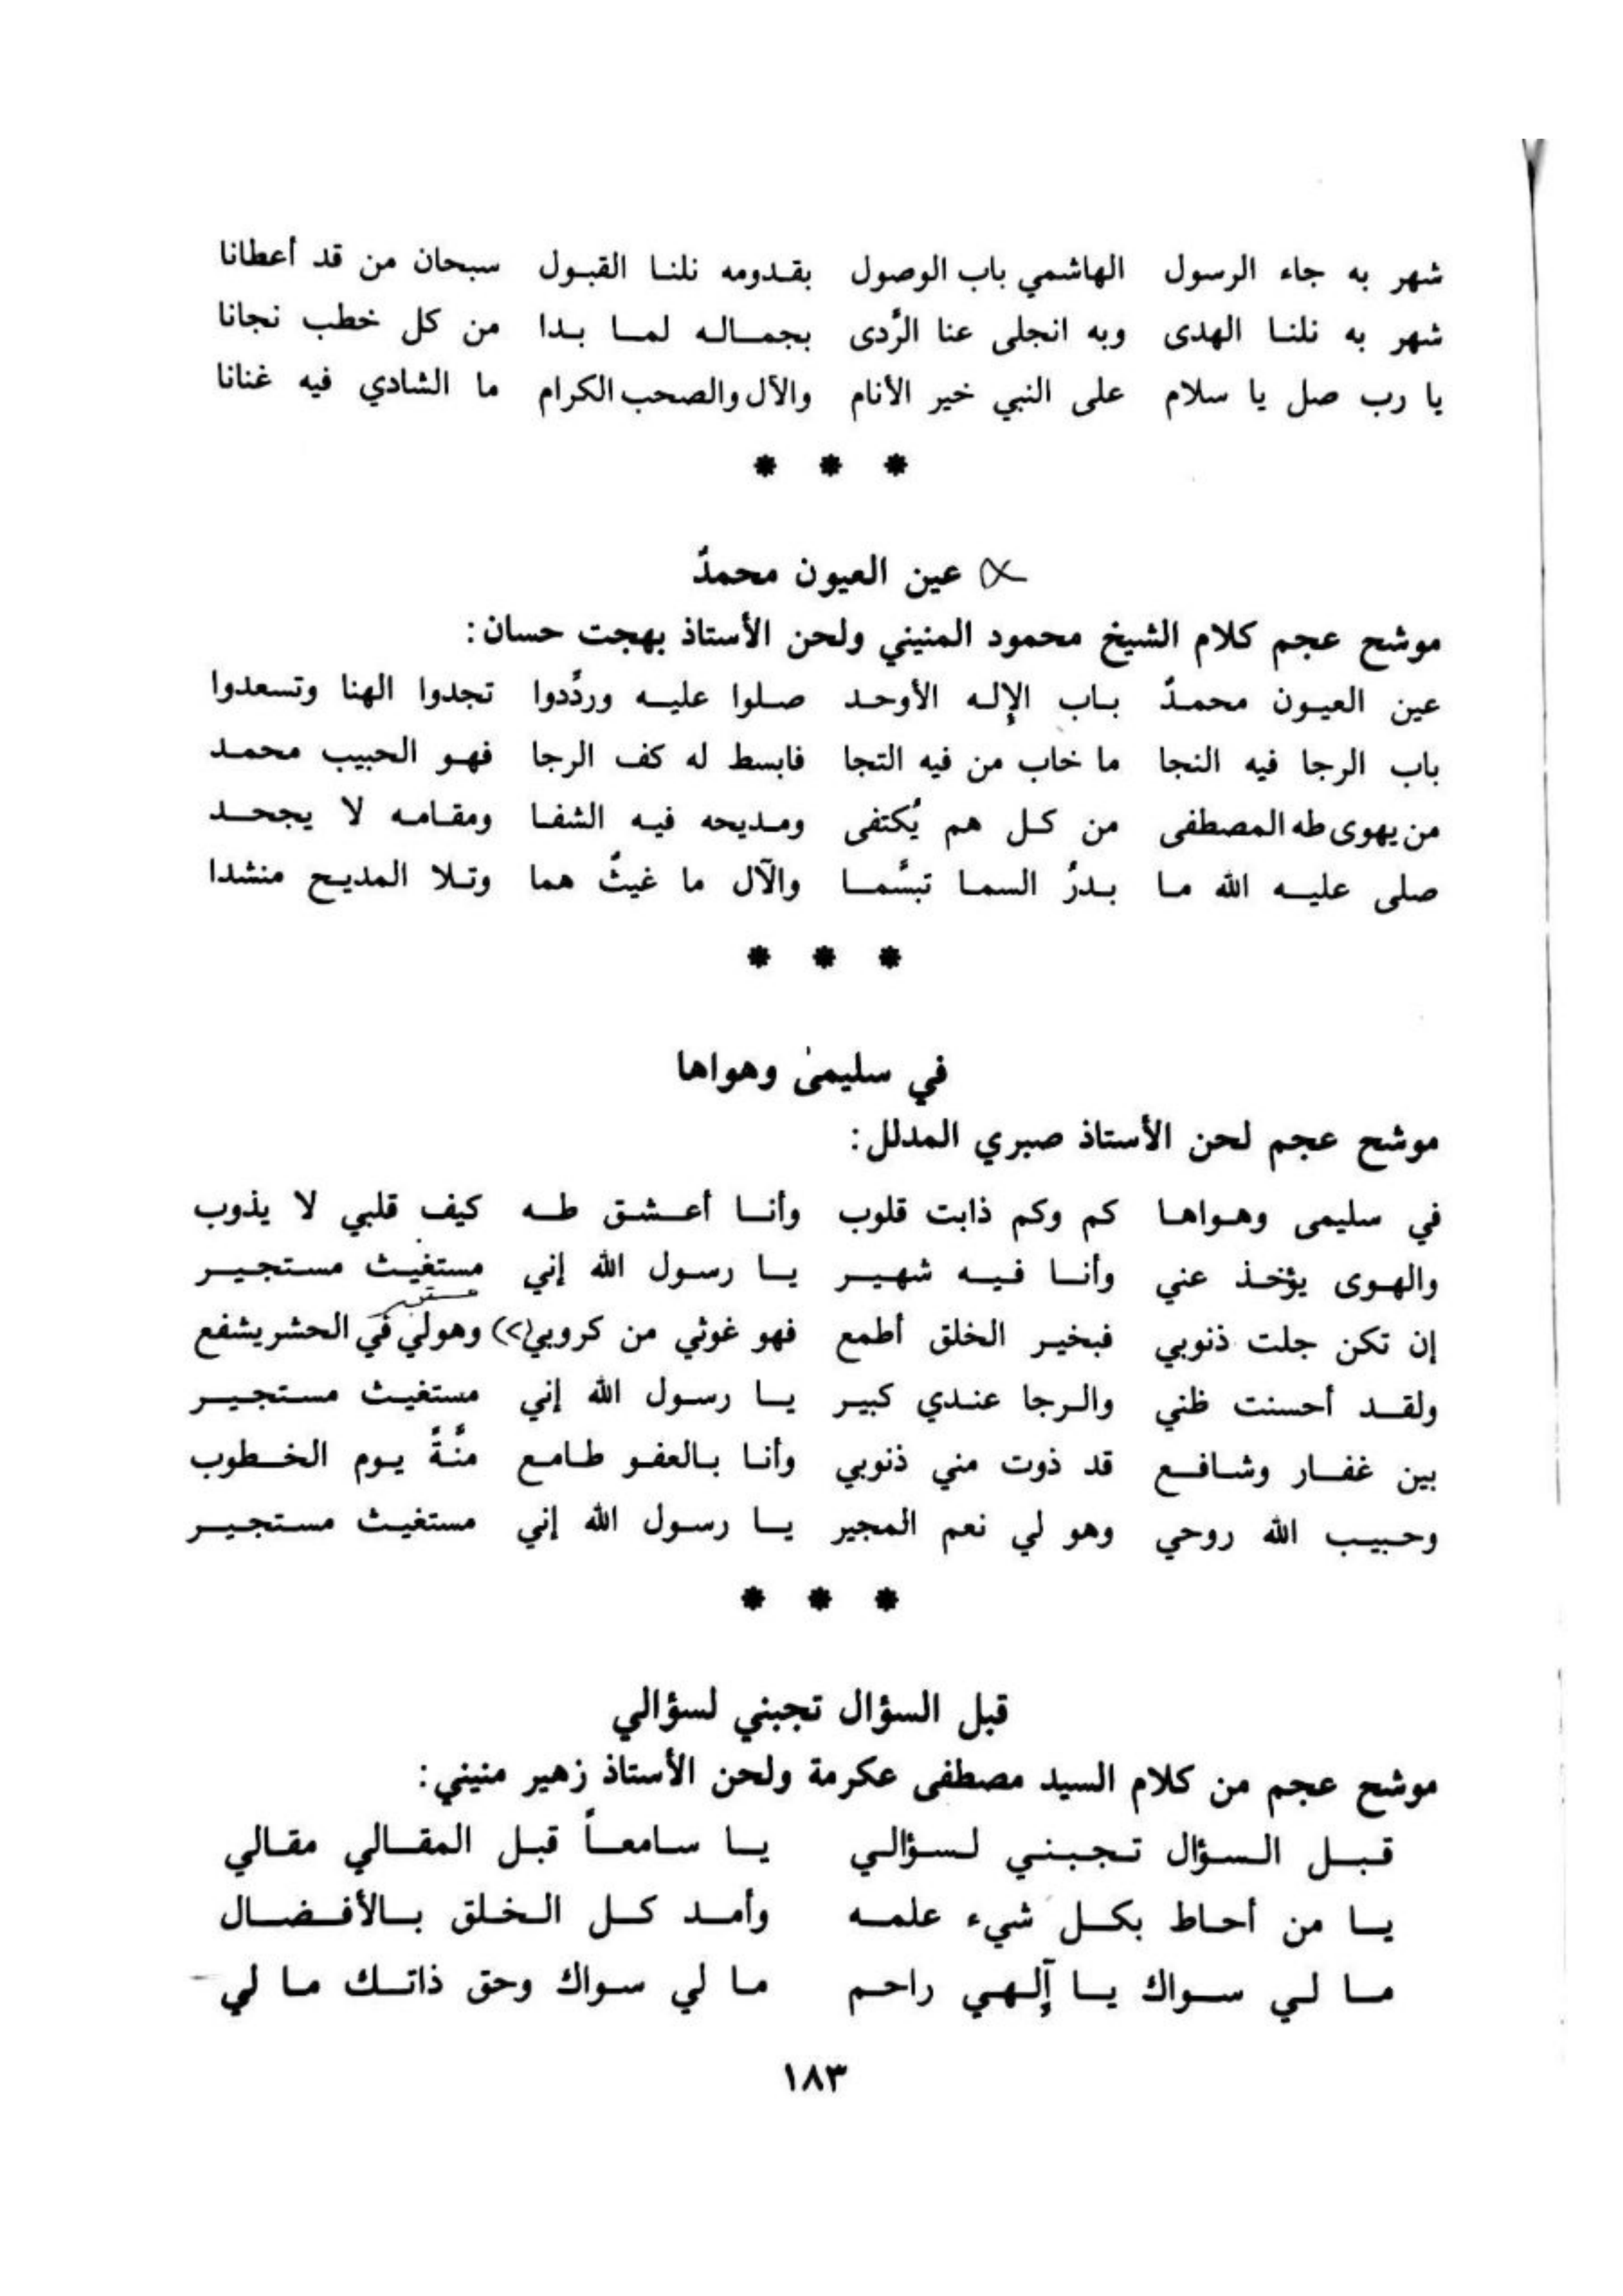 شهر به جاء الرسول الهاشمي باب الوصول بقدومه نلنا القبول سبحان من قد أعطانا
شهر به نلنا الهدى وبه انجلى عنا الرَّدى بجماله لما بدا من كل خطب نجانا
يا رب صل يا سلام على النبي خير الأنام والآل والصحب الكرام ما الشادي فيه غنانا
* * *
عين العيون محمدٌ
موشح عجم كلام الشيخ محمود المنيني ولحن الأستاذ بهجت حسان:
عين العيون محمدٌ باب الإله الأوحد صلوا عليه وردِّدوا تجدوا الهنا وتسعدوا
باب الرجا فيه النجا ما خاب من فيه التجا فابسط له كف الرجا فهو الحبيب محمد
من يهوى طه المصطفى من كل هم يُكتفى ومديحه فيه الشفا ومقامه لا يجحد
صلى عليه الله ما بدرُ السما تبسَّما والآل ما غيثٌ هما وتلا المديح منشدا
* * *
في سليمى وهواها
موشح عجم لحن الأستاذ صبري المدلل:
في سليمى وهواها كم وكم ذابت قلوب وأنا أعشق طه كيف قلبي لا يذوب
والهوى يؤخذ عني وأنا فيه شهير يا رسول الله إني مستغيث مستجير
إن تكن جلت ذنوبي فبخير الخلق أطمع فهو غوثي من كروبي وهو لي في الحشر يشفع
ولقد أحسنت ظني والرجا عندي كبير يا رسول الله إني مستغيث مستجير
بين غفار وشافع قد ذوت مني ذنوبي وأنا بالعفو طامع منَّةً يوم الخطوب
وحبيب الله روحي وهو لي نعم المجير يا رسول الله إني مستغيث مستجير
* * *
قبل السؤال تجبني لسؤالي
موشح عجم من كلام السيد مصطفى عكرمة ولحن الأستاذ زهير منيني:
قبل السؤال تجبني لسؤالي يا سامعاً قبل المقالي مقالي
يا من أحاط بكل شيء علمه وأمد كل الخلق بالأفضال
ما لي سواك يا آلهي راحم ما لي سواك وحق ذاتك ما لي
١٨٣